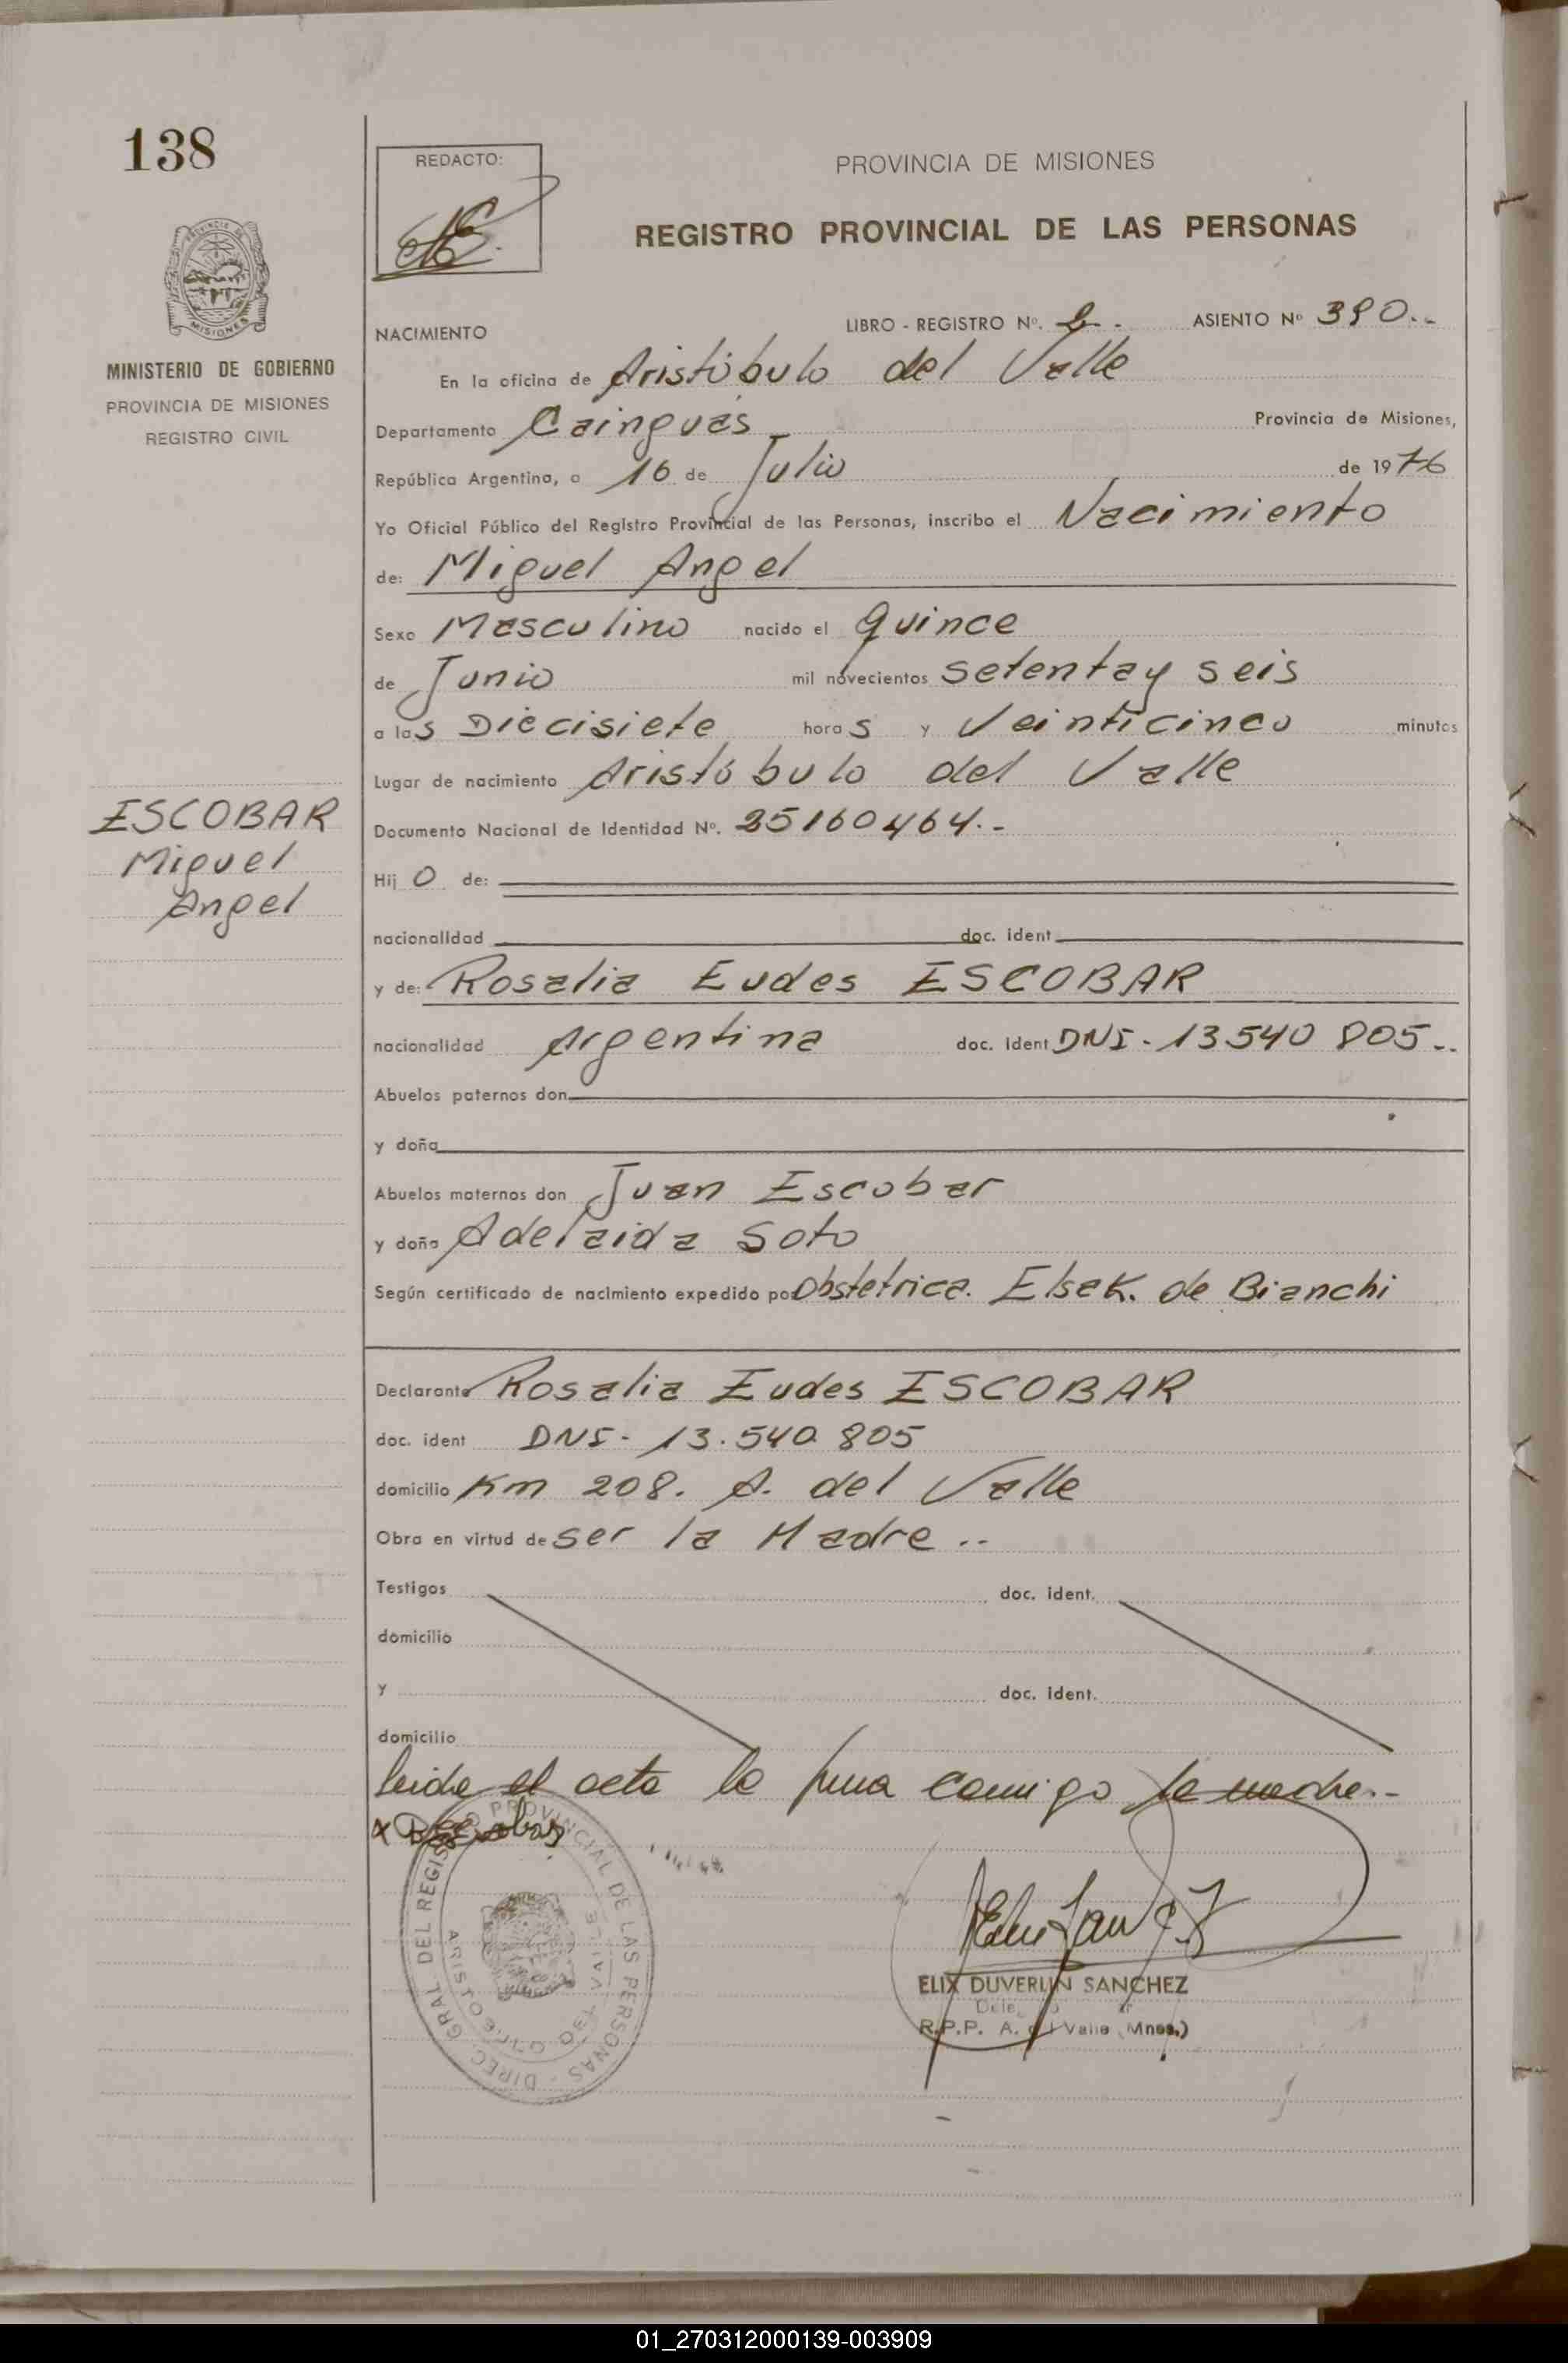 138
MINISTERIO DE GOBIERNO
PROVINCIA DE MISIONES
REGISTRO CIVIL
ESCOBAR
Miguel
Angel
REDACTO:
PROVINCIA DE MISIONES
REGISTRO PROVINCIAL DE LAS PERSONAS
NACIMIENTO LIBRO - REGISTRO Nº. ASIENTO Nº 390..
En la oficina de Aristóbulo del Valle
Departamento Cainguás Provincia de Misiones,
República Argentina, a 16 de Julio de 1976
Yo Oficial Público del Registro Provincial de las Personas, inscribo el Nacimiento
de: Miguel Angel
Sexo Masculino nacido el quince
de Junio mil novecientos setenta y seis
a las Diecisiete horas y Veinticinco minutos
Lugar de nacimiento Aristóbulo del Valle
Documento Nacional de Identidad Nº. 25160464.-
Hijo de:
nacionalidad doc. ident
y de: Rosalia Eudes ESCOBAR
nacionalidad Argentina doc. ident DNI - 13540 805..
Abuelos paternos don
y doña
Abuelos maternos don Juan Escobar
y doña Adelaida Soto
Según certificado de nacimiento expedido por Obstetrica. Elsa K. de Bianchi
Declarante Rosalia Eudes ESCOBAR
doc. ident DNI - 13.540.805
domicilio Km 208. A. del Valle
Obra en virtud de ser la Madre ..
Testigos doc. ident.
domicilio
y doc. ident.
domicilio
leida el acta la firma comigo la madre.-
DIREC. GRAL DEL REGISTRO PROVINCIAL DE LAS PERSONAS -
ARISTOBULO DEL VALLE
ELIX DUVERLIN SANCHEZ
R.P.P. A. del Valle (Mnes.)
01_270312000139-003909